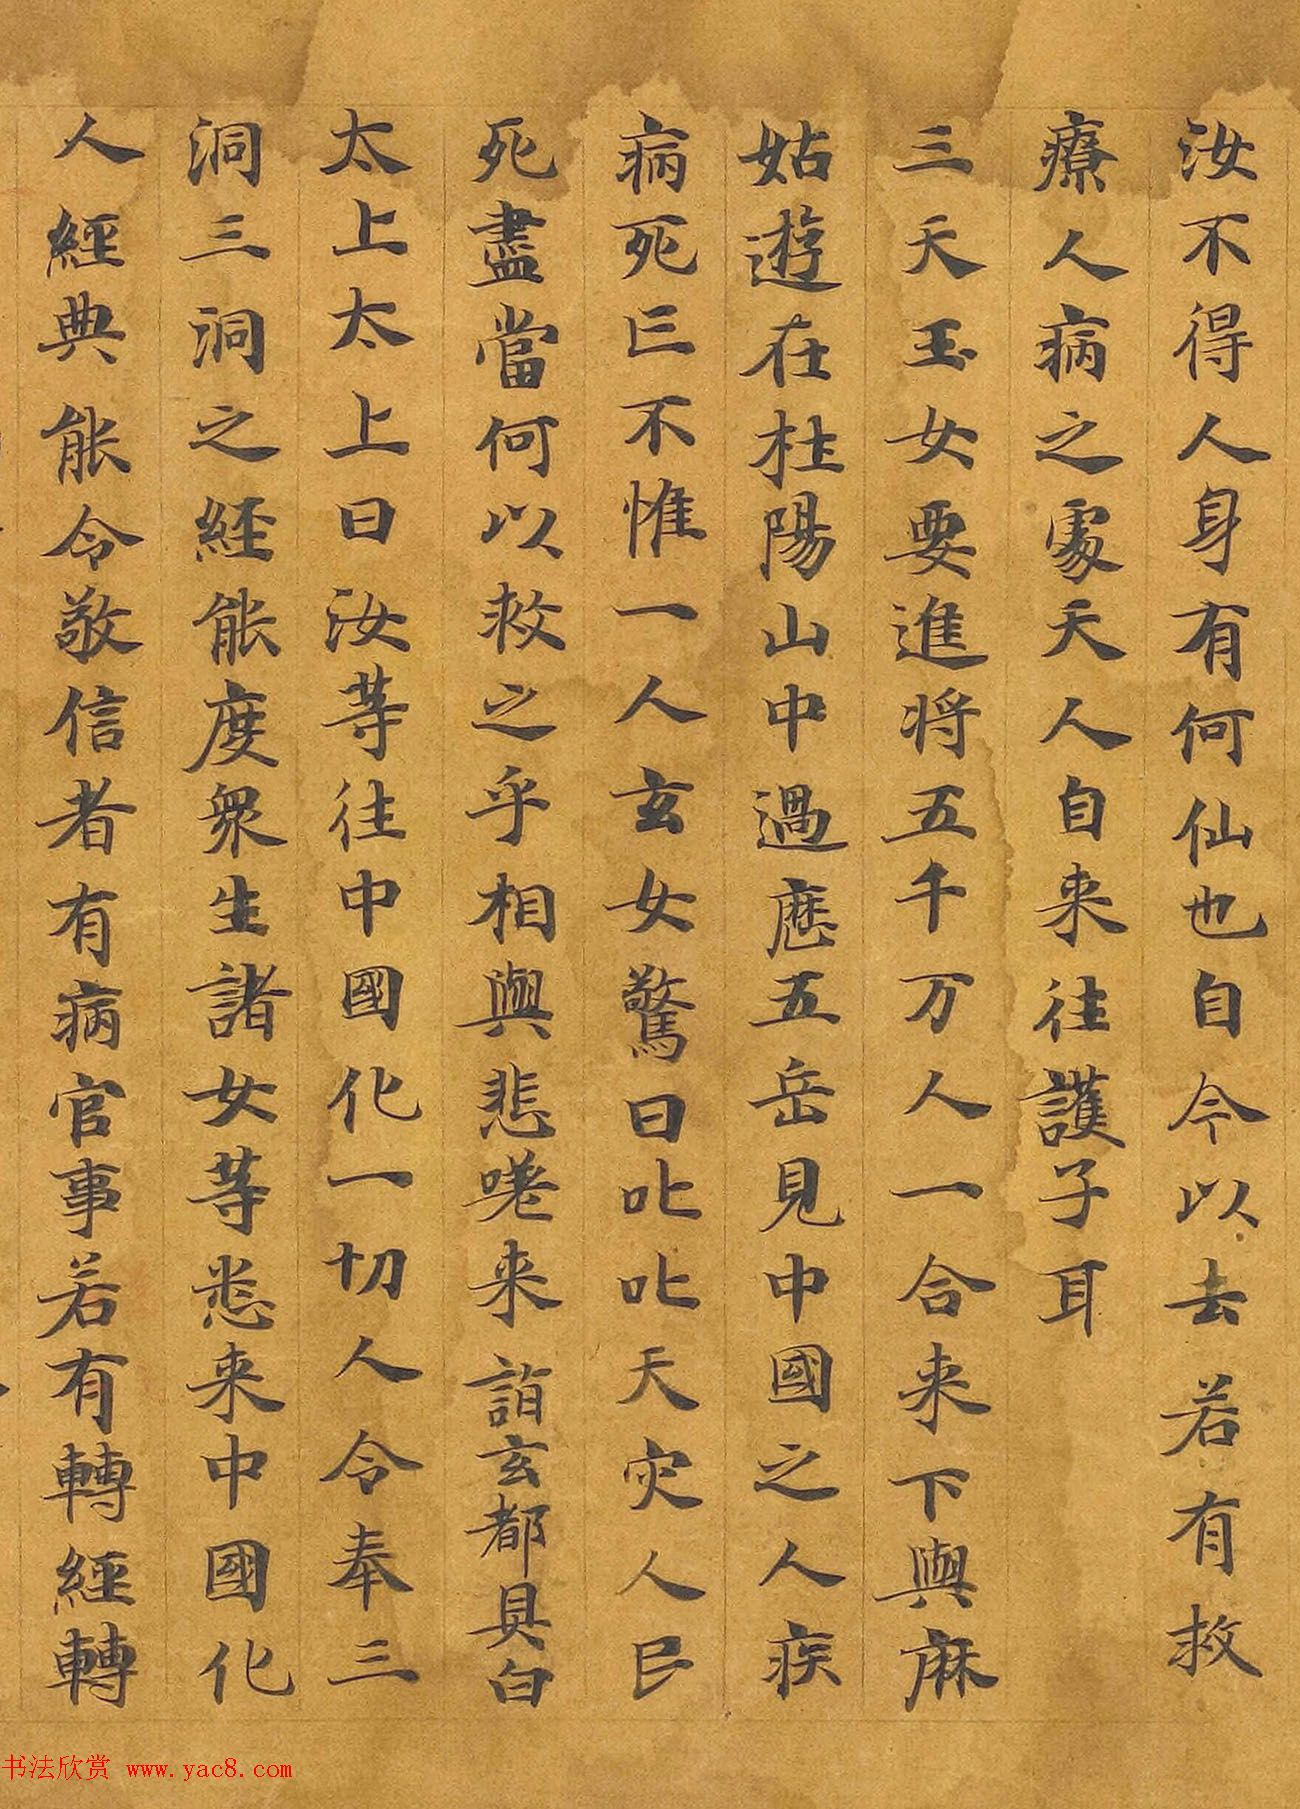 汝不得人身有何仙也自今以去若有救
療人病之處天人自来往護子耳
三天玉女要進将五千万人一合来下與麻
姑遊在杜陽山中過歷五岳見中國之人疾
病死亡不惟一人玄女驚曰叱叱天灾人民
死盡當何以救之乎相與悲嗟来詣玄都具白
太上太上曰汝等往中國化一切人令奉三
洞三洞之經能度衆生諸女等悉来中國化
人經典能令敬信者有病官事若有轉經轉
书法欣赏 www.yac8.com